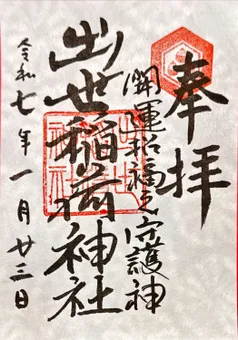 奉拝
開運招福之守護神
出世稲荷神社
令和七年一月廿三日